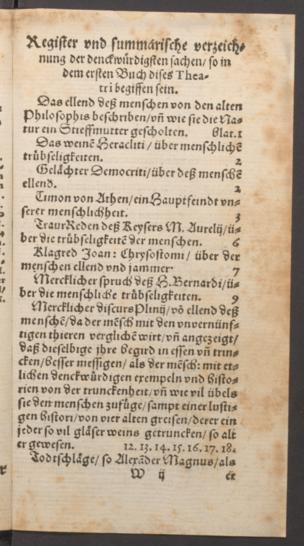 Register vnd summarische verzeich⸗
nung der denckwürdigsten sachen/ so in
dem ersten Buch dises Thea⸗
tri begiffen sein.
Das ellend deß menschen von den alten
Philosophis beschriben/ vñ wie sie die Na⸗
tur ein Stieffmutter gescholten. Blat.1
Das weinẽ Heracliti / über menschlichẽ
trübseligkeiten. 2
Gelächter Democriti/über deß menschẽ
ellend. 2
Timon von Athen/ein Hauptfeindt vn⸗
serer menschlichheit. 3
TraurReden deß Keysers M. Aurelij/ü⸗
ber die trübseligkeitẽ der menschen. 6
Klagred Joan: Chrysostomi/ über der
menschen ellend vnd jammer 7
Mercklicher spruch deß H. Bernardi/ü⸗
ber die menschliche trübseligkeiten. 9
Mercklicher discurs Plinij/võ ellend deß
menschẽ/da der mẽsch mit den vnvernünf⸗
tigen thieren verglichẽ wirt/ vñ angezeigt/
daß dieselbige jhre begird in essen vñ trin⸗
cken/besser messigen/ als der mẽsch: mit et⸗
lichen denckwürdigen exempeln vnd histo⸗
rien von der trunckenheit/ vñ wie vil übels
sie den menschen zufüge/sampt einer lusti⸗
gen histori/von vier alten greisen/derer ein
jeder so vil gläser weins getruncken/ so alt
er gewesen. 12. 13. 14. 15. 16. 17. 18.
Todtschläge/ so Alexãder Magnus/als
W ij er